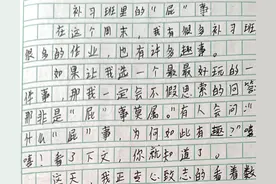 补习班里的“屁”事
在这个周末，我有很多补习班
很多的作业，也有许多趣事。
如果让我选一个最最好玩的一
件事，那我一定会不假思索的回答
那非是“屁”事莫属。有人会问：
什么“屁”事，为何如此有趣？嘻
嘻！看了下文，你就知道了。
这天，我正专心致志的看着数